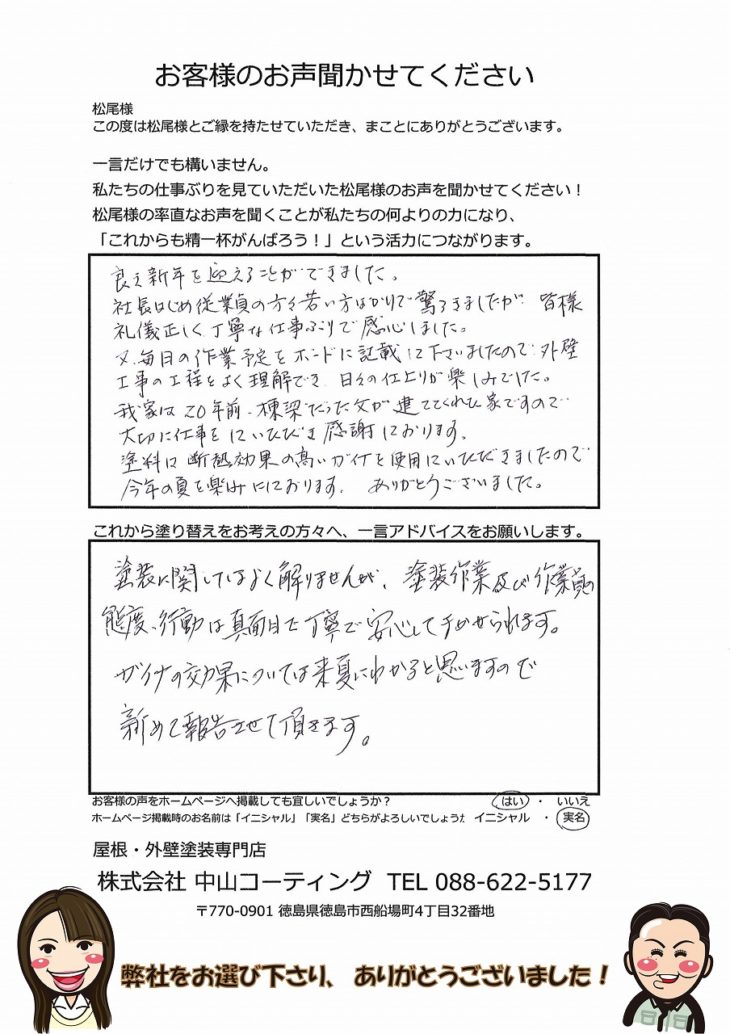 お客様のお声聞かせてください
松尾様
この度は松尾様とご縁を持たせていただき、まことにありがとうございます。
一言だけでも構いません。
私たちの仕事ぶりを見ていただいた松尾様のお声を聞かせてください！
松尾様の率直なお声を聞くことが私たちの何よりの力になり、
「これからも精一杯がんばろう！」という活力につながります。
良き新年を迎えることができました。
社長はじめ従業員の方々若い方ばかりで驚ろきましたが 皆様
礼儀正しく丁寧な仕事ぶりで感心しました。
又、毎日の作業予定をボードに記載して下さいましたので外壁
工事の工程をよく理解でき、日々の仕上りが楽しみでした。
我家は20年前、棟梁だった父が建ててくれた家ですので
大切に仕事をしていただき感謝しております。
塗料は断熱効果の高いガイナを使用していただきましたので
今年の夏を楽しみにしております。 ありがとうございました。
これから塗り替えをお考えの方々へ、一言アドバイスをお願いします。
塗装に関してはよく解りませんが、塗装作業及び作業員の
態度、行動は真面目で丁寧で安心してまかせられます。
ガイナの効果については来夏にわかると思いますので
新めて報告させて頂きます。
お客様の声をホームページへ掲載しても宜しいでしょうか？ はい ・ いいえ
ホームページ掲載時のお名前は「イニシャル」「実名」どちらがよろしいでしょうか イニシャル ・ 実名
屋根・外壁塗装専門店
株式会社 中山コーティング TEL 088-622-5177
〒770-0901 徳島県徳島市西船場町4丁目32番地
弊社をお選び下さり、ありがとうございました！